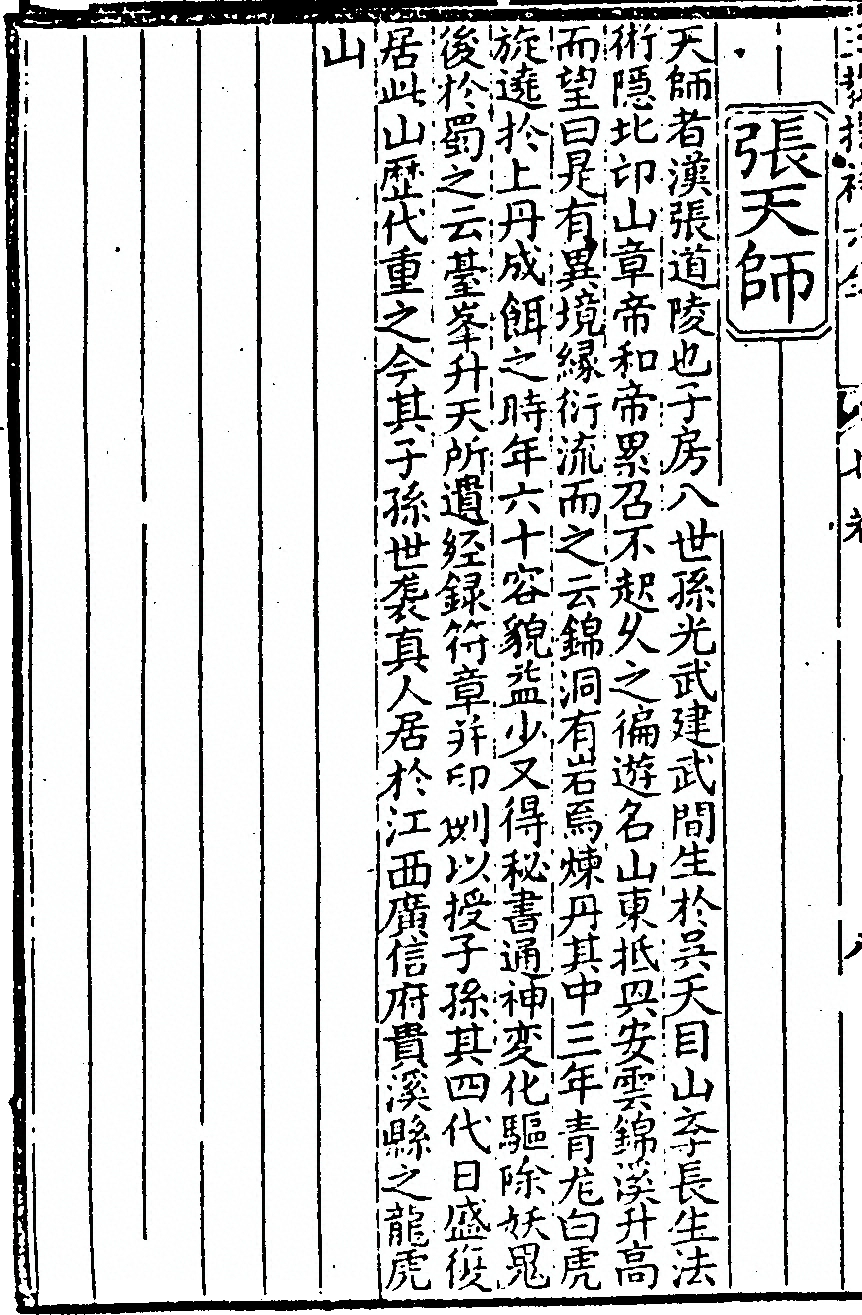 張天師
天師者漢張道陵也子房八世孫光武建武間生於吳天目山斈長生法
術隱北邙山章帝和帝累召不起久之徧遊名山東抵興安雲錦溪升高
而望曰是有異境緣衍流而之云錦洞有岩焉煉丹其中三年青龙白虎
旋遶於上丹成餌之時年六十容貌益少又得秘書通神変化驅除妖鬼
後於蜀之云臺峯升天所遺経錄符章并印劍以授子孫其四代曰盛復
居此山歷代重之今其子孫世袭真人居於江西廣信府貴溪縣之龍虎
山